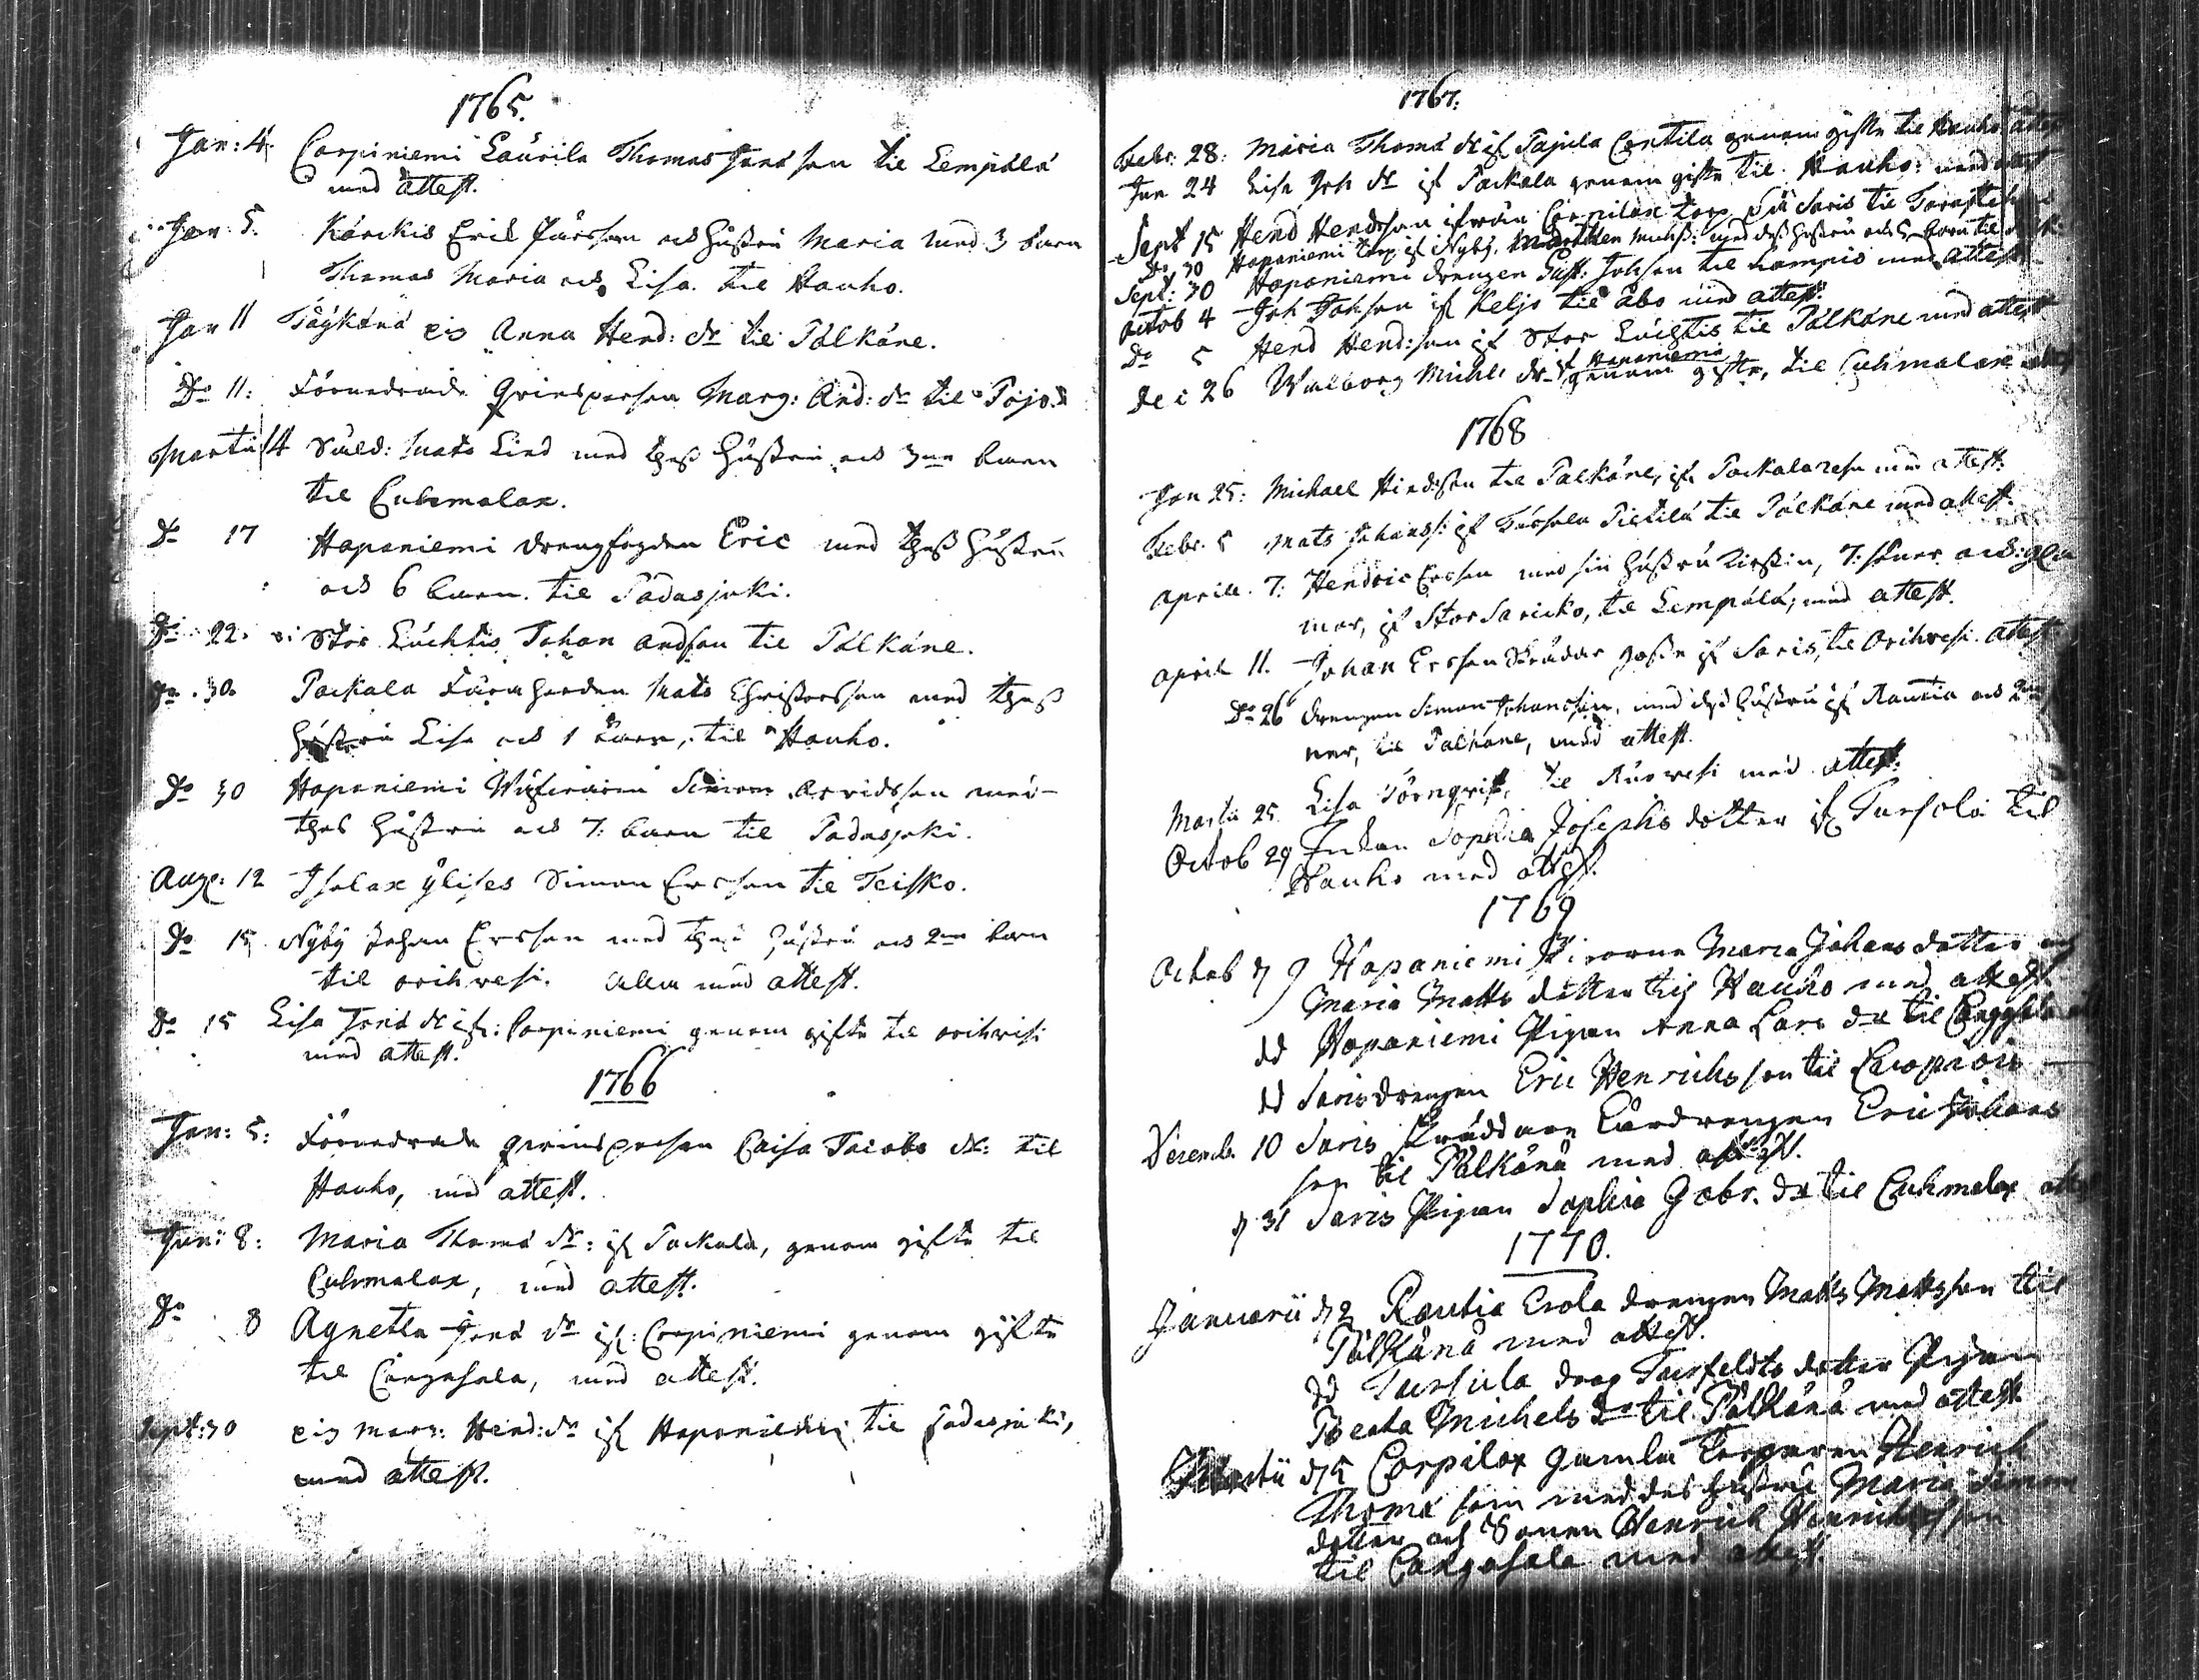 1765.
Jan: 4. Corpiniemi Laurila Thomas Jonæ son til Lempälä
med attest.
Jan: 5. Kárckis Eric Pärsson och hustru Maria med 3 barn
Thomas Maria och Lisa. til Hauho.
Jan 11 Töykänä pig Anna Hend: dr til Pálkáne.
Do 11: Förnedrade qvinspersen Marg: And: dr til
Martii 14 Suld: Mats Lind med thess hustru och 3ne barn
til Cuhmalax.
Do 17 Haponiemi drengfogden Eric med thess hustru
och 6 barn. til Padasjoki.
Do 22. Stor Lächtis Johan Andson til Pálkáne.
Do 30. Packala Färaherden Mats Christersson med thess
hustru Lisa och 1 barn, til Hauho.
Do 30 Haponiemi Simon Arvidsson med
thes hustru och 7: barn til Padasjoki.
Aug: 12 Isolax ylises Simon Ersson til Teisko.
Do 15 Nyby Johan Ersson med thess hustru och 2ne barn
til orihwesi. alla med attest.
Do 15 Lisa Jonæ dr ifr: Corpiniemi genom gifte til orihwesi
med attest.
1766
Jan: 5: Förnedrade qvinspersen Caisa Jacobs dr: til
Hauho, med attest.
Jun: 8: Maria Thomæ dr: ifr Packala, genom gifte til
Cuhmalax, med attest.
Do 8 Agnetta Jonæ dr ifr: Corpiniemi genom gifte
til Cangasala, med attest.
Sept: 30 pig Marg: Hend: dr ifr Haponiemi til Padasjoki,
med attest.
1767.
Febr. 28: Maria Thomæ dr ifr Pajula Contila genom gifte til Hauho
Jun 24 Lisa Joh dr ifr Packala genom gifte til Hauho: med attest
Sept 15 Hend Hendsson ifrån Corpilax torp på Saris til
Do 30 Haponiemi torp ifr Nyby, med dess hustru och barn til
Sept: 30 Haponiemi drengen Gust: Johson til Lampis med attest
Octob 4 Joh Johson ifr Keljo til Åbo med attest.
Do 5 Hend Hend:son ifr Stor Lächtis til Pálkáne med attest
Dec 26 Walborg Michls dr ifr Haponiemi genom gifte, til Cuhmalax
1768
Jan 25: Michael Hindsson til Palkáne, ifr Packala med attest.
Febr. 5 Mats Johanss: ifr Pietilä til Pálkáne med attest.
Aprili. 7: Hendric Ersson med sin hustru Kirstin, 7: söner och
ifr Stor Saricko, til Lempälä, med attest.
April 11. Johan Ersson Skräddar gosse ifr Saris, til Orihwesi. attest
Do 26 drengen Simon Johansson, med dess hustru ifr Rautia och
til Palkáne, med attest.
Martii 25. Lisa Törnqvist, til Ruowesi med attest.
Octob 29 Enkan Sophia Josephs dotter ifr Tursola til
Hauho med attest.
1769
Octob d 9 Haponiemi Maria Johans dotter och
Maria Matts dotter til Hauho med attest
dd Haponiemi Pigan Anna Lars dr til Cangasala
dd Saris drengen Eric Henrichsson til
Decemb. 10 Saris Skräddare Lärdrengen Eric Johans
son til Pálkánä med attest.
d 31 Saris Pigan Sophia Gabr. dr til Cuhmalax
1770.
Januarii d 2 Rautia Erola drengen Matts Mattsson til
Pálkánä med attest.
dd Tursula drag Tursfeldts dotter Pigan
Beata Michels dr til Pálkánä med attest
d 5 Corpilax gamla Torparen Henrich
Thomæ son med des hustru Maria Simons
dotter och Sonen Henrich Henrichsson
til Cangasala med attest.